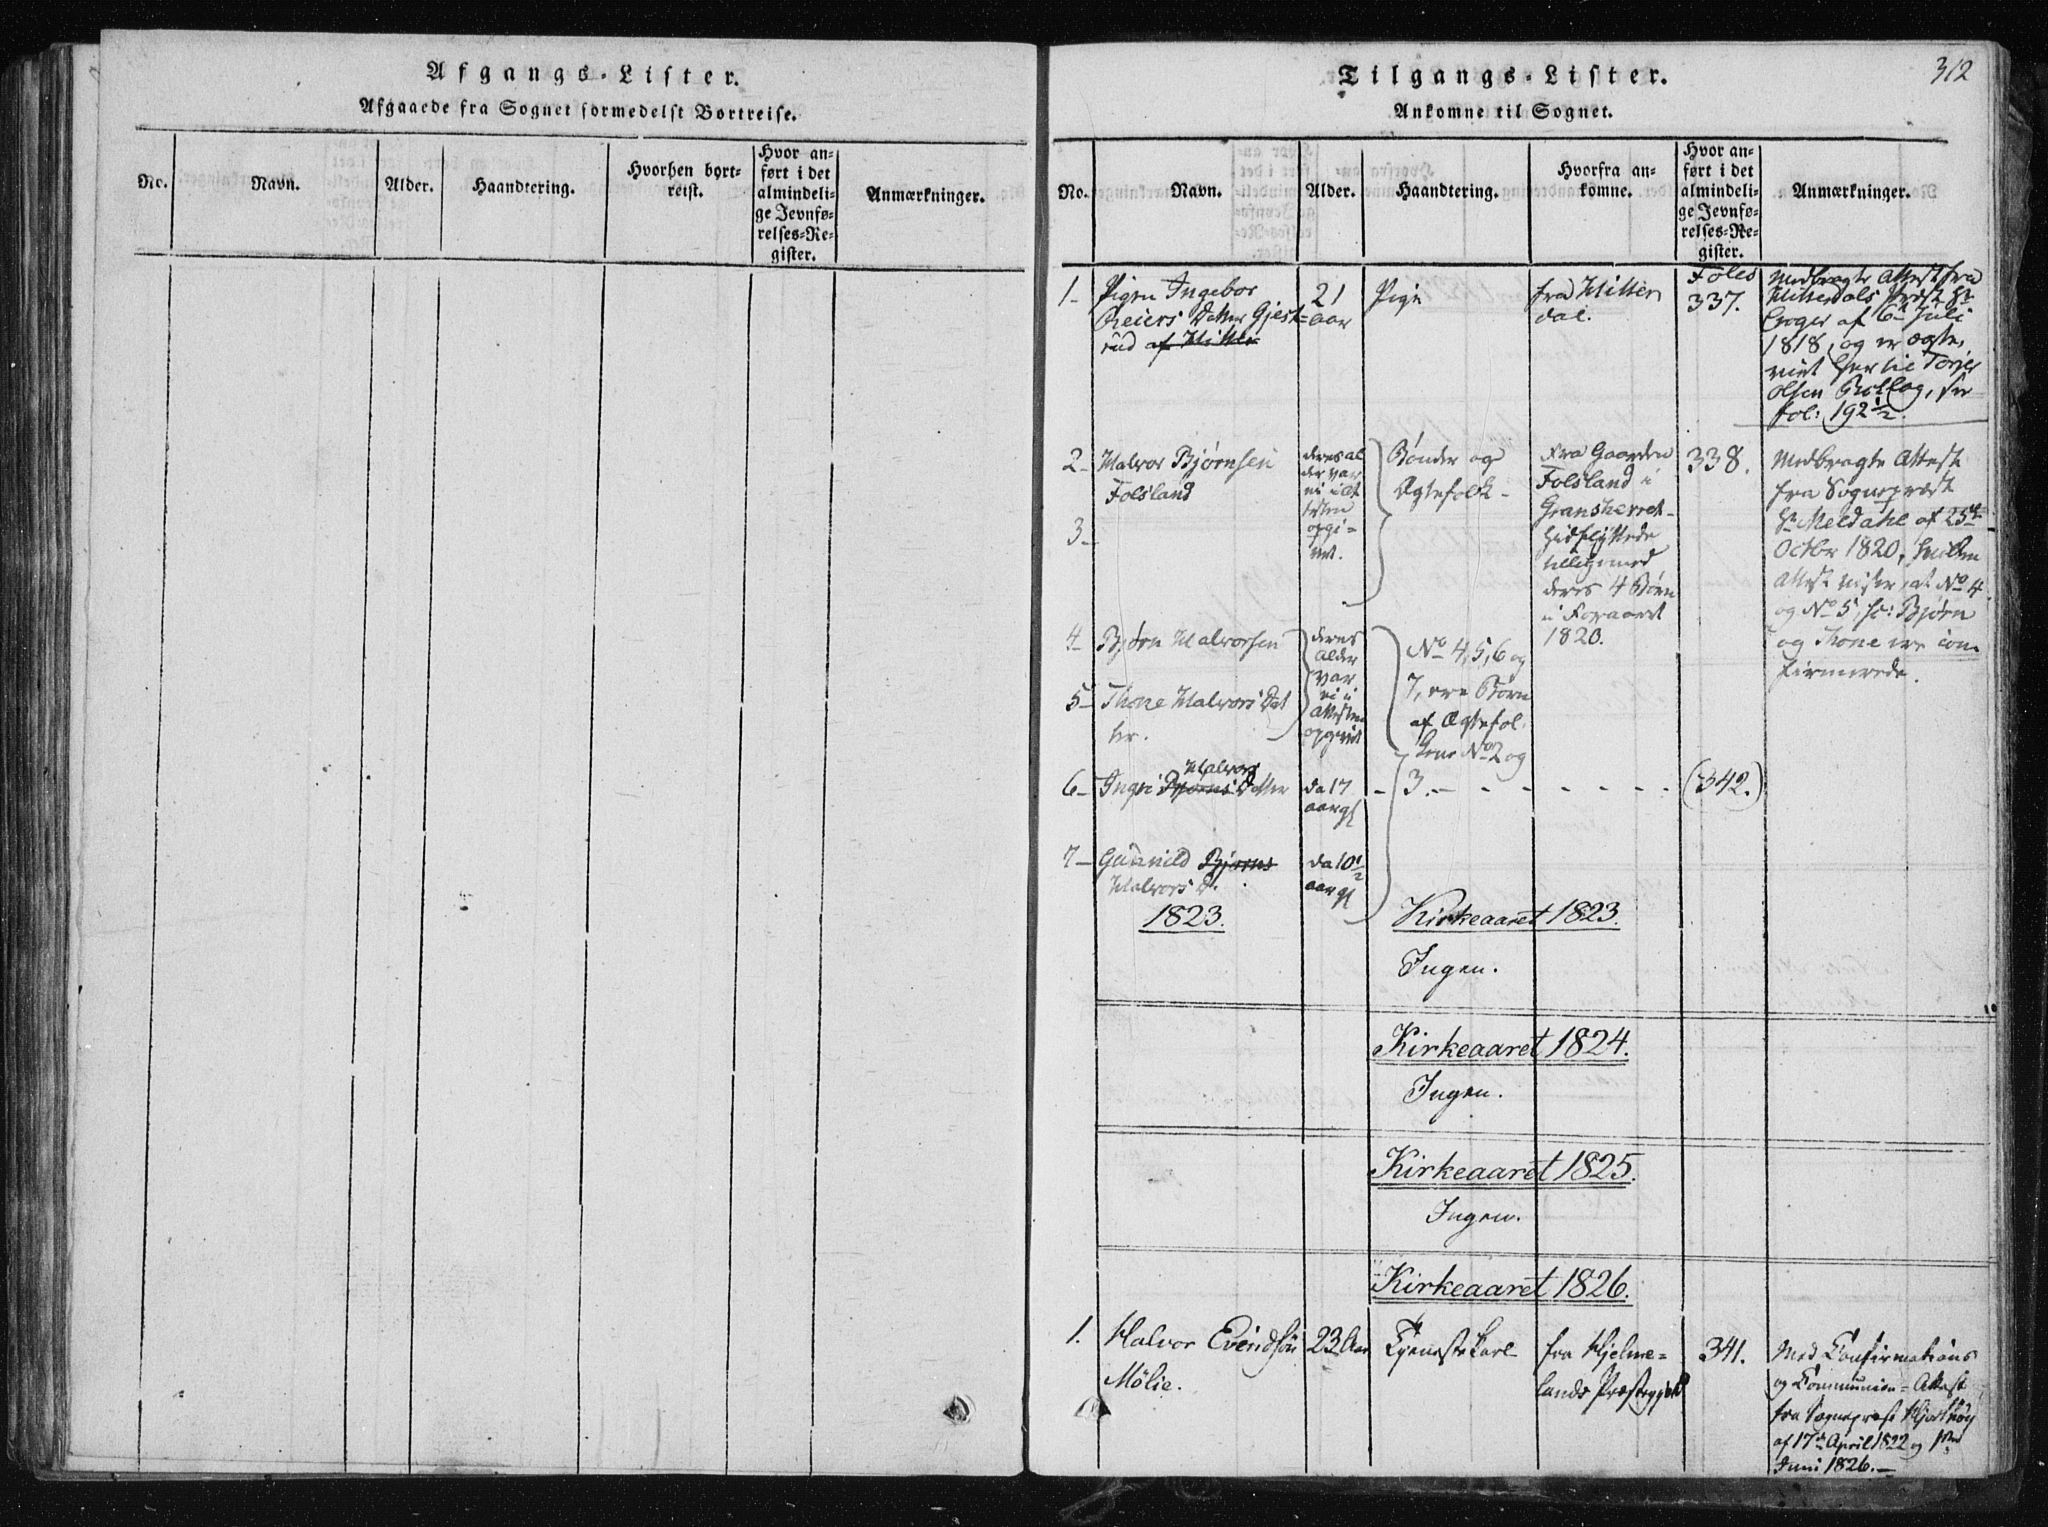 Afgangs-Lister.
Afgaaede fra Sognet formedelst Bortreise.
No.
Navn.
Alder.
Haandtering.
Hvorhen bort-
reist.
Hvor an-
ført i det
almindeli-
ge Jevnfø-
relses-Re-
gister.
Anmærkninger.
312
Tilgangs-Lister.
Ankomne til Sognet.
No.
Navn.
Alder.
Haandtering.
Hvorfra an-
komne.
Hvor an-
ført i det
almindeli-
ge Jevnfø-
relses-Re-
gister.
Anmærkninger.
1-
Pigen Ingebor
Reiers Datter Gjest=
rud af Hitter
21
aar
Pige
fra Hitter
dal.
Folio
337.
Medbragte Attest fra
Hitterdals Præst Hr
af 6 Juli
1818, og er ægte-
viet her til Torjer
Olsen Bollag, see
fol: 192½.
2-
Halvor Bjørnsen
Folsland
3-
deres al
der var
ei i At
testen
opgi-
vet.
Bønder og
Ægtefolk -
Fra Gaarden
Folsland i
Gransherret-
hidflyttede
tilligemed
deres 4 Børn
i Foraaret
1820.
338.
Medbragte Attest
fra Sognepræst
Hr Meldahl af 25de
Octbr 1820, hvilken
Attest viser, at No 4
og No 5, sc: Bjørn
og Thone ere con-
firmerede.
4-
Bjørn Halvorsen
5-
Thone Halvors Dat
ter.
deres
alder
var
ei i
Attesten
opgivet
No 4, 5, 6 og
7, ere Børn
af Ægtefol-
kene No 2 og
3.-
6-
Halvors
Ingri Bjørns Datter
da 17
aar gl
(342.)
7-
Gunnild Bjørns
Halvors D.
da 10½
aar gl
1823.
Kirkeaaret 1823.
Ingen.
Kirkeaaret 1824.
Ingen.
Kirkeaaret 1825.
Ingen.
Kirkeaaret 1826.
1.
Halvor Evendsøn
Mølie.
23 Aar
Tjenestekarl
fra Hjelme=
lands Præstegjeld
341.
Med Confirmations
og Communion=Attest
fra Sognepræst Hjorthøy
af 17de April 1822 og 1ste
Juni 1826.-